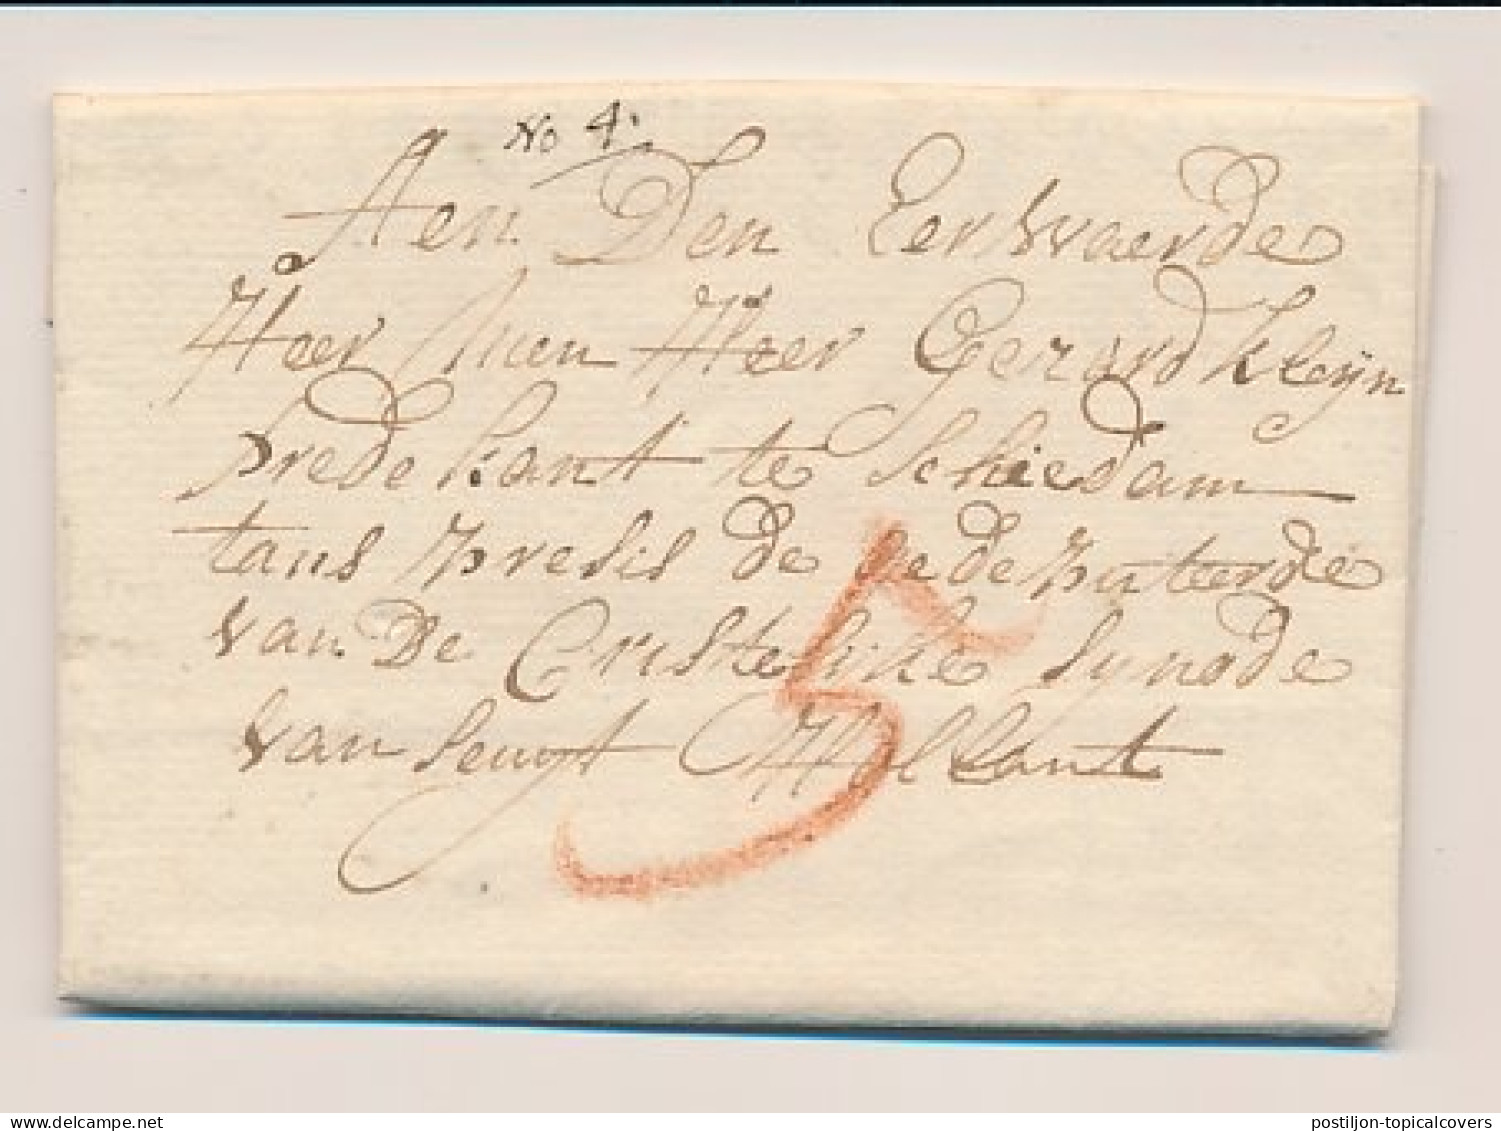 No 4.
Aen Den Eerwaerde
Heer Mien Heer Gerard kleijn
predekant te Schiedam
tans presis de gedeputeerde
van De Cristelike Synode
van Seuyt Hollant
5
www.delcampe.net
postiljon-topicalcovers